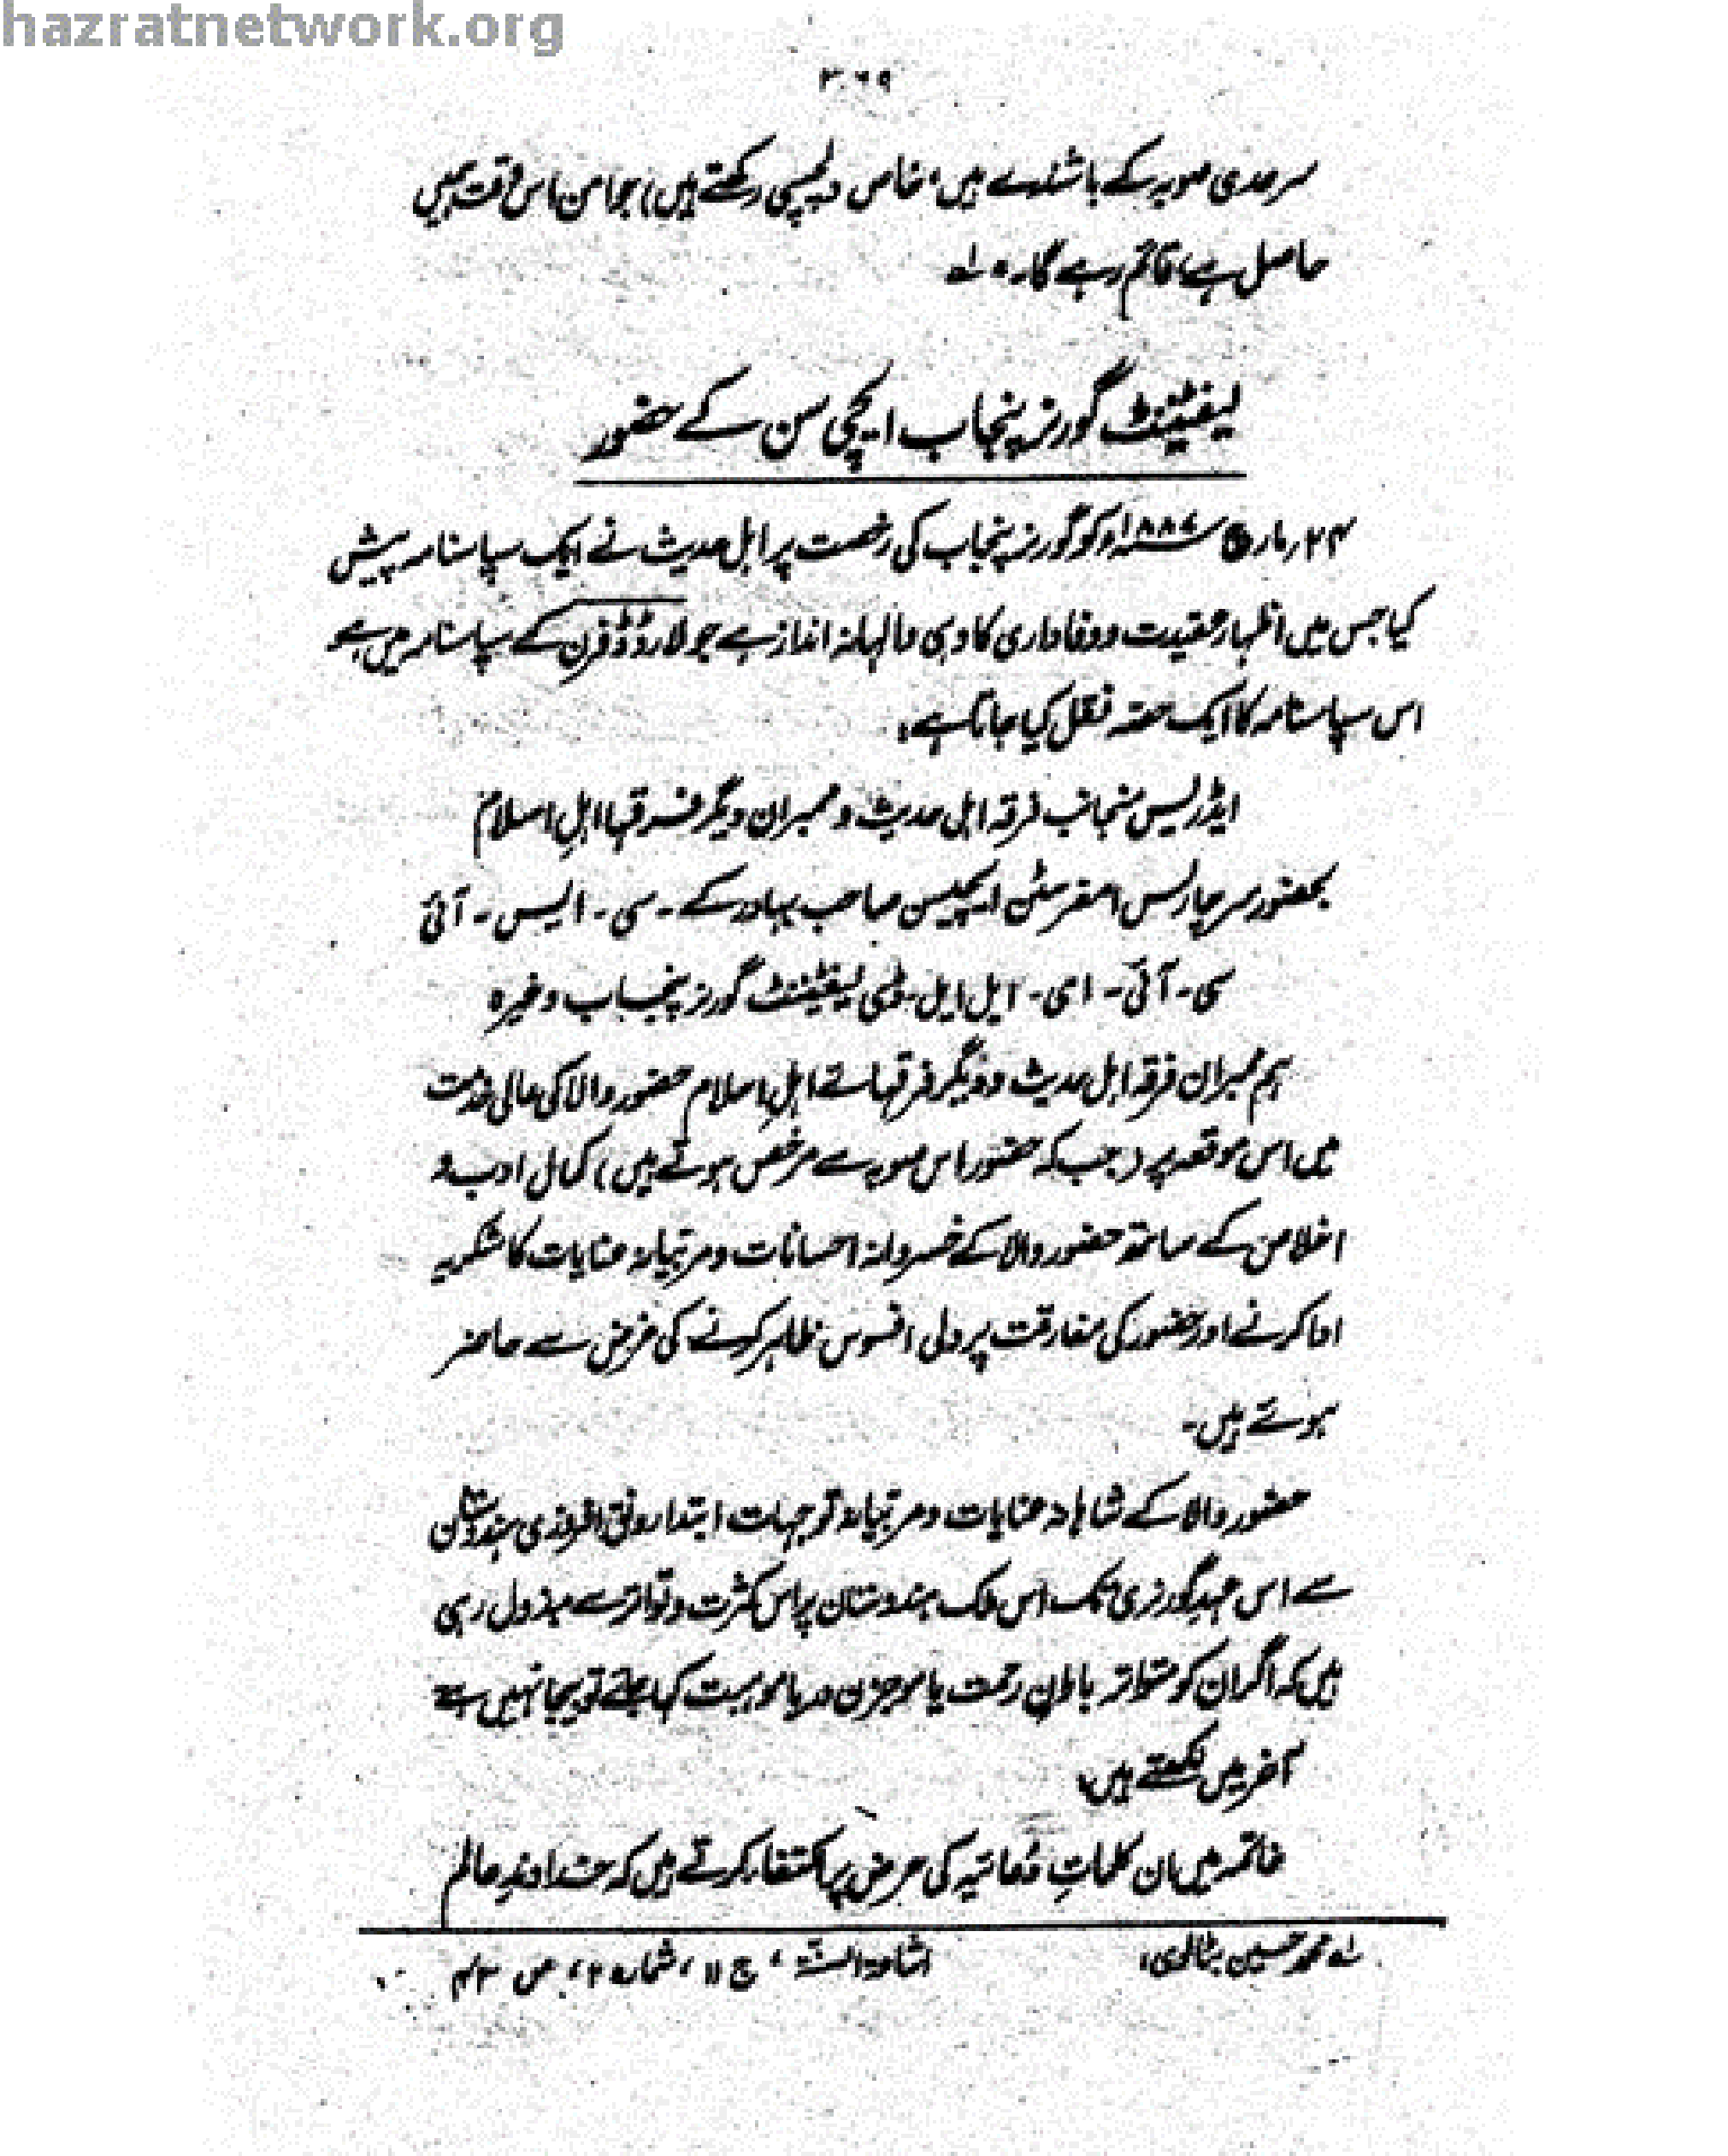 hazratnetwork.org
۳۰۶۹
سرحدی صوبہ کے باشندے ہیں، خاص دلچسپی رکھتے ہیں) جو امن اس وقت ہمیں
حاصل ہے، قائم رہے گا۔" ؎۱
لیفٹیننٹ گورنر پنجاب ایچی سن کے حضور
۲۴؍ مارچ ۱۸۸۷ء کو گورنر پنجاب کی رخصت پر اہل حدیث نے ایک سپاسنامہ پیش
کیا جس میں اظہار عقیدت و وفاداری کا وہی والہانہ انداز ہے جو لارڈ ڈفرن کے سپاسنامہ میں ہے
اس سپاسنامہ کا ایک حصہ نقل کیا جاتا ہے:
ایڈریس منجانب فرقہ اہل حدیث و ممبران دیگر فرقہا اہلِ اسلام
بحضور سر چارلس امفرسٹن ایچیسن صاحب بہادر کے۔ سی۔ ایس۔ آئی
سی۔ آئی۔ ای۔ ایل ایل۔ ڈی لیفٹیننٹ گورنر پنجاب وغیرہ
ہم ممبران فرقہ اہل حدیث و دیگر فرقہائے اہلِ اسلام حضور والا کی عالی خدمت
میں اس موقعہ پر (جب کہ حضور اس صوبہ سے مرخص ہوتے ہیں) کمال ادب و
اخلاص کے ساتھ حضور والا کے خسروانہ احسانات و مربیانہ عنایات کا شکریہ
ادا کرنے اور حضور کی مفارقت پر دلی افسوس ظاہر کرنے کی غرض سے حاضر
ہوئے ہیں۔
حضور والا کے شاہانہ عنایات و مربیانہ توجہات ابتدا رونق افروزی ہندوستان
سے اس عہد گورنری تک اس ملک ہندوستان پر اس کثرت و تواتر سے مبذول رہی
ہیں کہ اگر ان کو متواتر باران رحمت یا موجزن دریا موہبت کہا جائے تو بیجا نہیں ہے
آخر میں لکھتے ہیں:
خاتمہ میں ان کلماتِ دُعائیہ کی عرض پر اکتفاء کرتے ہیں کہ خداوندِ عالم
؎۱ محمد حسین بٹالوی، اشاعۃ السنۃ، ج ۱۱، شمارہ ۲، ص ۴۳